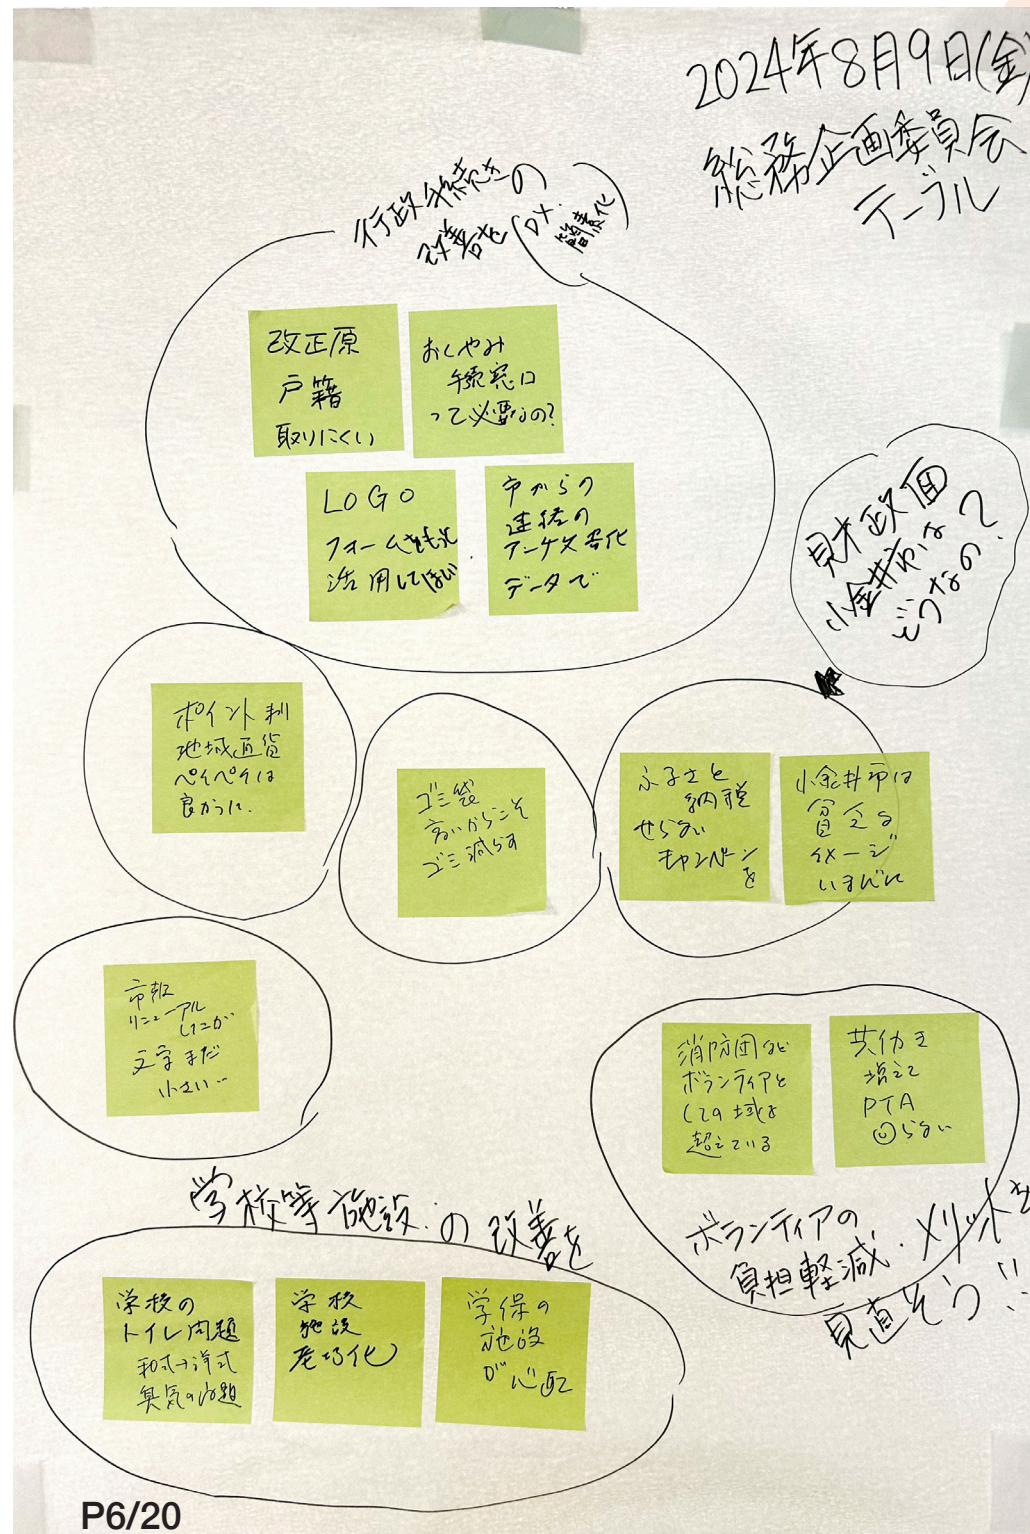 2024年8月9日(金)
総務企画委員会
テーブル
行政手続きの
改善を(DX・
簡素化)
改正原
戸籍
取りにくい
おくやみ
手続窓口
って必要なの?
LOGO
フォームをもっと
活用してほしい
市からの
連絡の
アンケート
データで
財政面
小金井市は
どうなの?
ポイント制
地域通貨
ペイペイは
良かった.
ゴミ袋
高いからこそ
ゴミ減らす
ふるさと
納税
せらない
キャンペーン
を
小金井市は
貧乏な
イメージ
いまだに
市報
リニューアル
したが
文字まだ
小さい…
消防団など
ボランティアと
しての域を
超えている
共働き
増えて
PTA
らない
ボランティアの
負担軽減・メリットを
見直そう!!
学校等施設の改善を
学校の
トイレ問題
和式→洋式
臭気の問題
学校
施設
老朽化
学保の
施設
が心配
P6/20